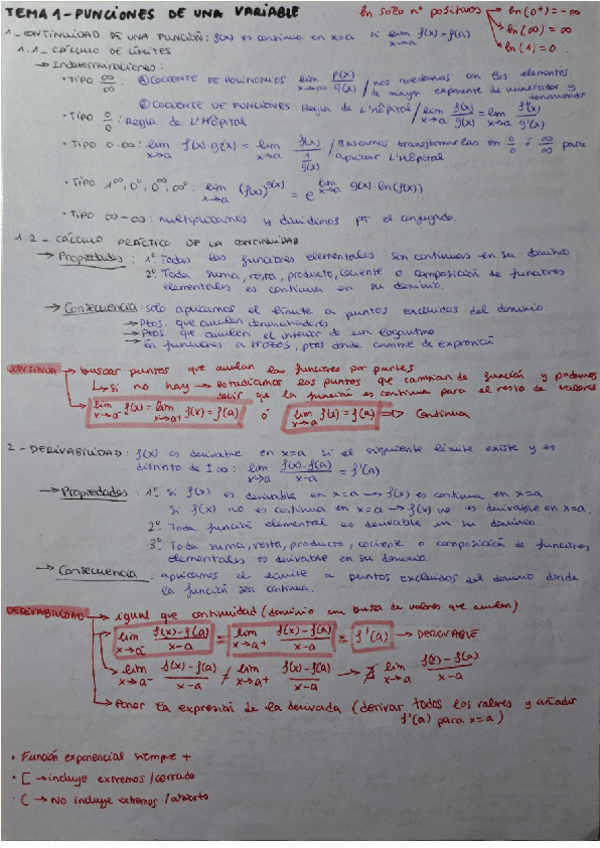 TEMA 1 - FUNCIONES DE UNA VARIABLE
ln solo nº positivos → ln(0+) = -∞
→ ln(∞) = ∞
→ ln(1) = 0
1 - CONTINUIDAD DE UNA FUNCIÓN: f(x) es continua en x=a si lim x→a f(x) = f(a)
1.1 - CÁLCULO DE LÍMITES
→ Indeterminaciones:
· TIPO ∞/∞: Ⓐ COCIENTE DE POLINOMIOS: lim x→∞ P(x)/q(x) / nos quedamos con los elementos
de mayor exponente de numerador y denominador
② COCIENTE DE FUNCIONES: Regla de L'Hôpital / lim x→a f(x)/g(x) = lim x→a f'(x)/g'(x)
· TIPO 0/0: Regla de L'Hôpital
· TIPO 0·∞: lim x→a f(x)·g(x) = lim x→a f(x)/(1/g(x)) / Buscamos transformarlas en 0/0 ó ∞/∞ para
aplicar L'Hôpital
· TIPO 1^∞, 0^0, 0^∞, ∞^0: lim x→a (f(x))^g(x) = e^(lim x→a g(x)·ln(f(x)))
· TIPO ∞-∞: multiplicamos y dividimos por el conjugado.
1.2 - CÁLCULO PRÁCTICO DE LA CONTINUIDAD
→ Propiedades: 1º Todas las funciones elementales son continuas en su dominio
2º Toda suma, resta, producto, cociente o composición de funciones
elementales es continua en su dominio.
→ Consecuencia: solo aplicamos el límite a puntos excluidos del dominio
→ Ptos. que anulan denominadores
→ Ptos. que anulen el interior de un logaritmo
→ En funciones a trozos, ptos donde cambie de expresión
CONTINUA → buscar puntos que anulan las funciones por partes
↳ si no hay → estudiamos los puntos que cambian de función y podemos
decir que la función es continua para el resto de valores
→ lim x→a- f(x) = lim x→a+ f(x) = f(a) ó lim x→a f(x) = f(a) ⇒ Continua
2 - DERIVABILIDAD: f(x) es derivable en x=a si el siguiente límite existe y es
distinto de ±∞: lim x→a f(x)-f(a)/x-a = f'(a)
→ Propiedades: 1º si f(x) es derivable en x=a → f(x) es continua en x=a
Si f(x) no es continua en x=a → f(x) no es derivable en x=a.
2º Toda función elemental es derivable en su dominio.
3º Toda suma, resta, producto, cociente o composición de funciones
elementales es derivable en su dominio.
→ Consecuencia: aplicamos el límite a puntos excluidos del dominio donde
la función sea continua.
DERIVABILIDAD → igual que continuidad (dominio en busca de valores que anulan)
→ lim x→a- f(x)-f(a)/x-a = lim x→a+ f(x)-f(a)/x-a = f'(a) → DERIVABLE
→ lim x→a- f(x)-f(a)/x-a ≠ lim x→a+ f(x)-f(a)/x-a → ∄ lim x→a f(x)-f(a)/x-a
→ Poner la expresión de la derivada (derivar todos los valores y añadir
f'(a) para x=a)
· Función exponencial siempre +
· [ → incluye extremos / cerrado
· ( → No incluye extremos / abierto